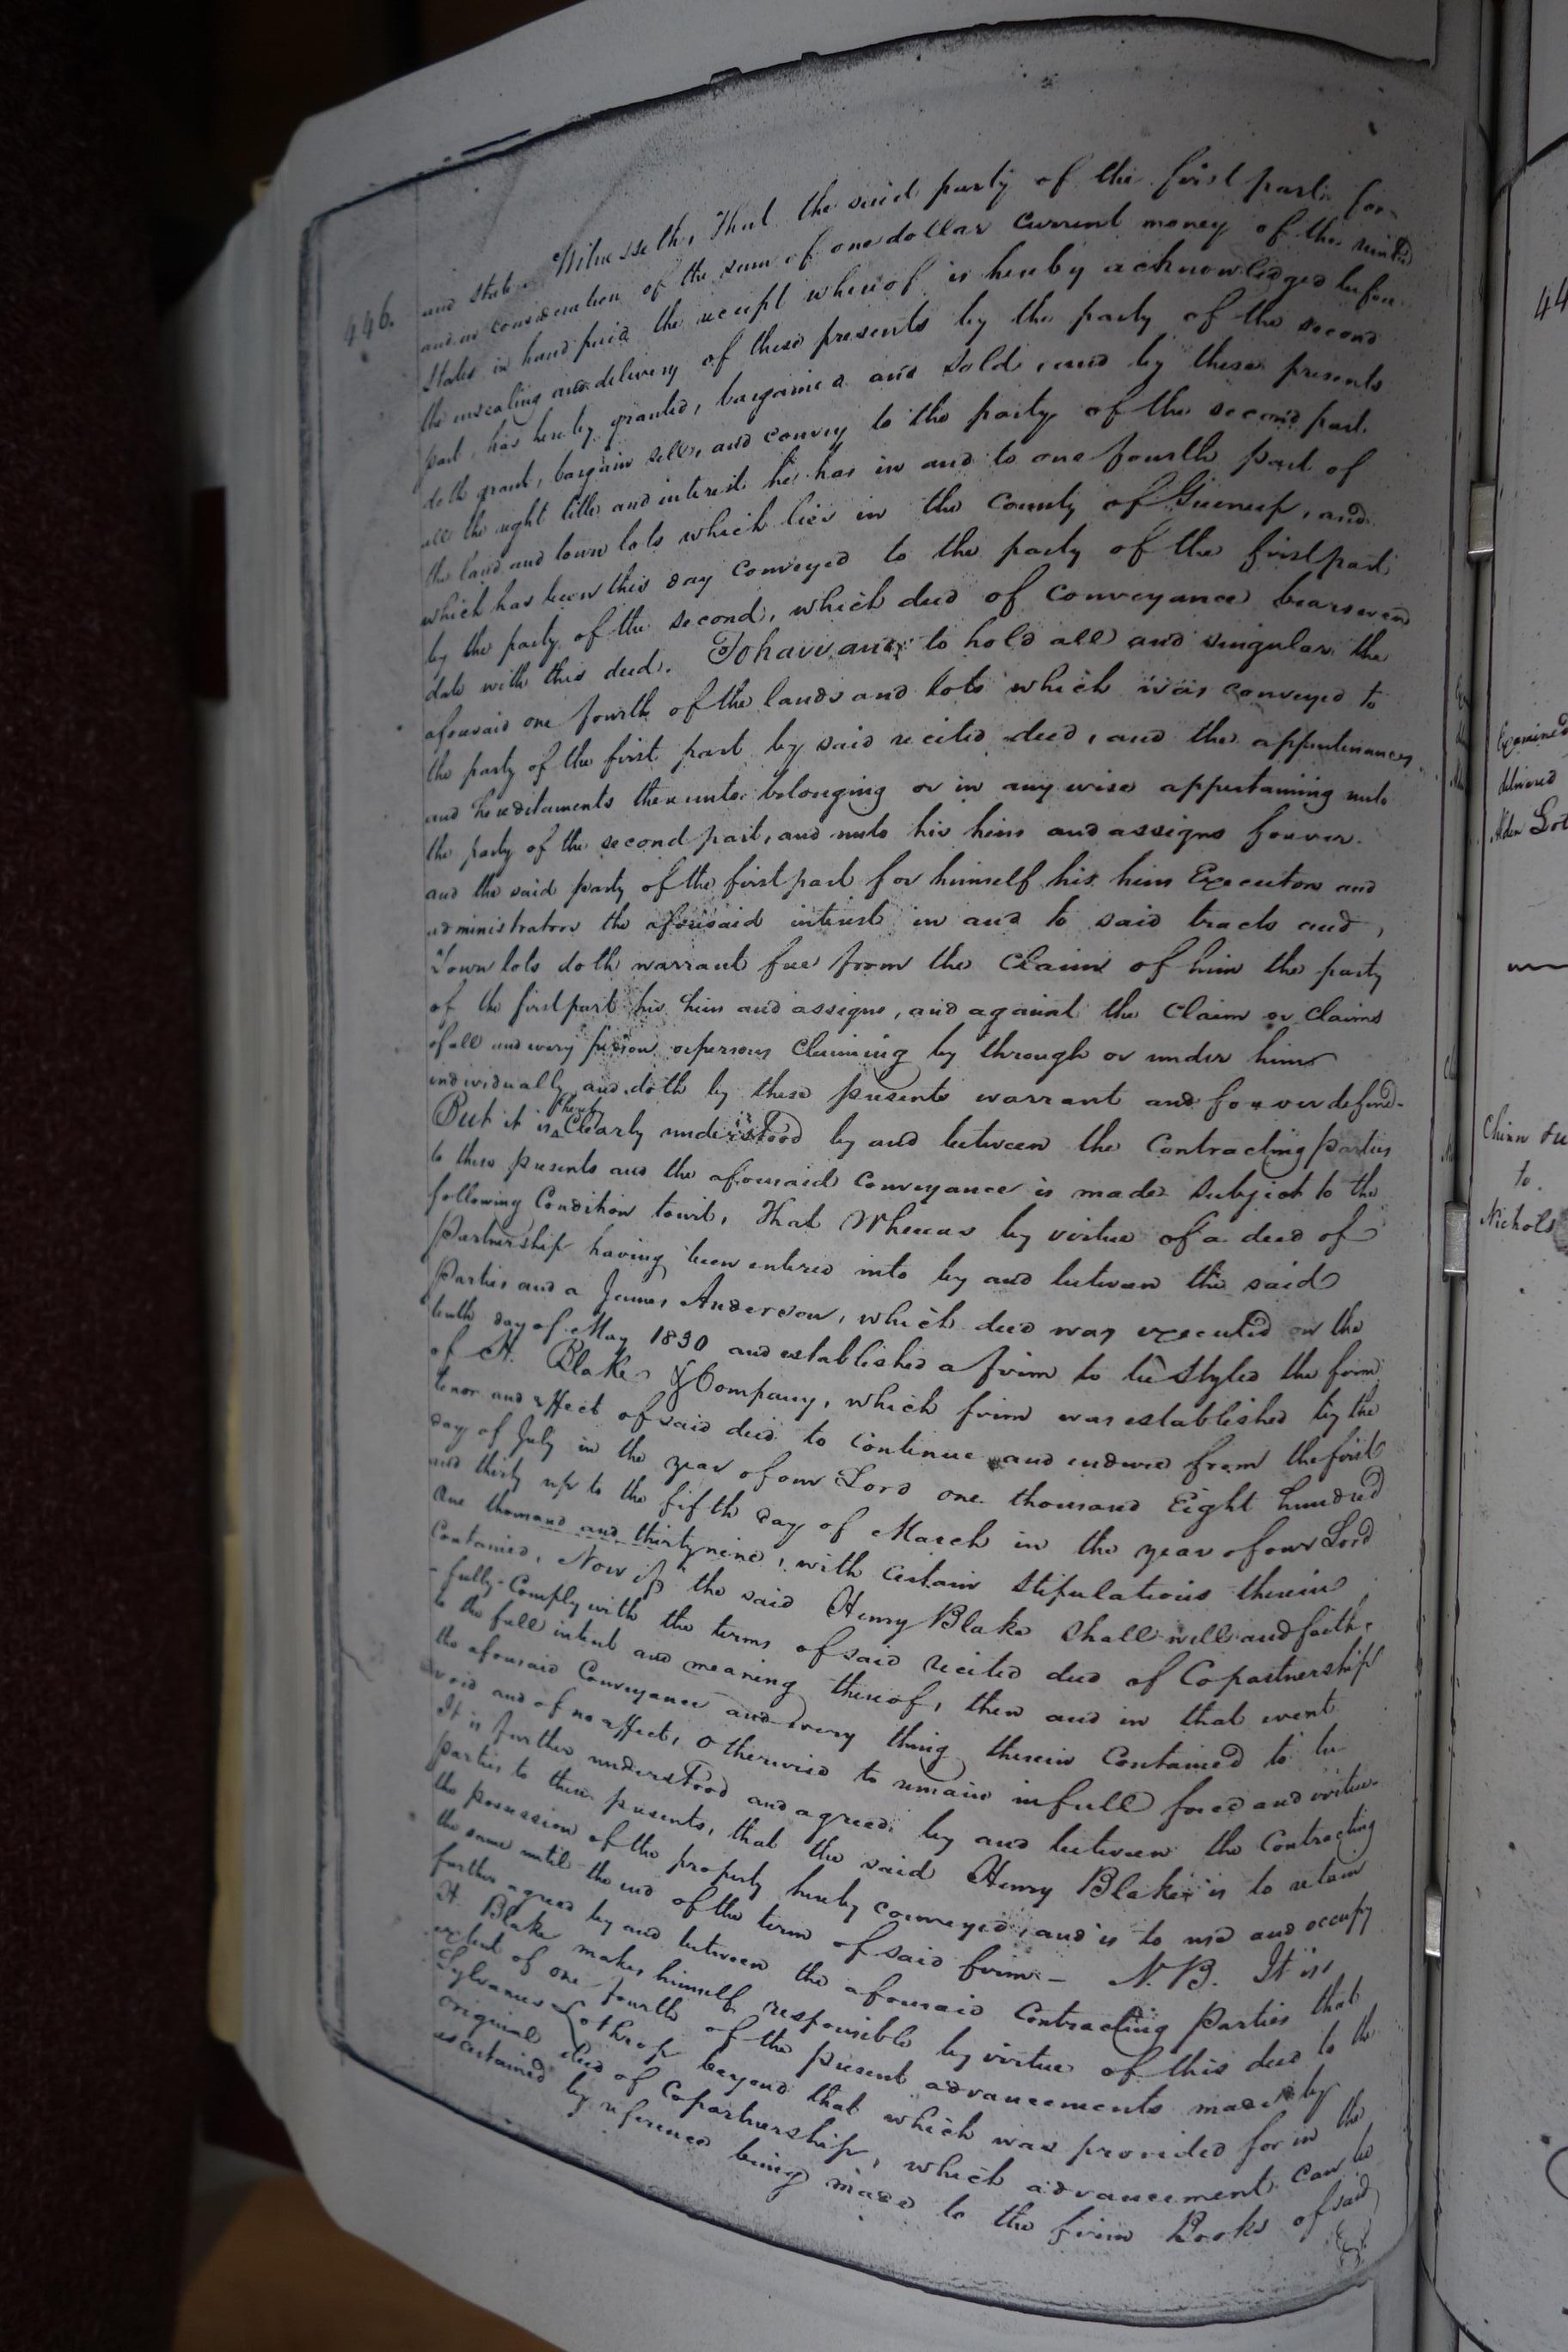 446.
and state Witnesseth, That the said party of the first part for
and in consideration of the sum of one dollar current money of the united
States in hand paid the receipt whereof is hereby acknowledged before
the ensealing and delivery of these presents by the party of the second
part, has hereby granted, bargained and sold, and by these presents
doth grant, bargain sell, and convey to the party of the second part.
all the right title and interest he has in and to one fourth part of
the land and town lots which lies in the County of Greenup, and
which has been this day conveyed to the party of the first part
by the party of the second, which deed of conveyance bears even
date with this deed. To have and to hold all and singular the
aforesaid one fourth of the lands and lots which was conveyed to
the party of the first part by said recited deed, and the appurtenances
and hereditaments thereunto belonging or in any wise appertaining unto
the party of the second part, and unto his heirs and assigns forever.
and the said party of the first part for himself his heirs Executors and
administrators the aforesaid interest in and to said tracts and,
Town lots doth warrant free from the Claim of him the party
of the first part his heirs and assigns, and against the Claim or Claims
of all and every person or persons Claiming by through or under him
individually and doth by these presents warrant and forever defend-
But it is hereby Clearly understood by and between the Contracting parties
to these presents and the aforesaid Conveyance is made subject to the
following Condition towit, That Whereas by virtue of a deed of
Partnership having been entered into by and between the said
Parties and a James Anderson, which deed was executed on the
tenth day of May 1830 and established a firm to be Styled the firm
of H. Blake & Company, which firm was established by the
tenor and effect of said deed to Continue and endure from the first
day of July in the year of our Lord one thousand Eight hundred
and thirty up to the fifth day of March in the year of our Lord
One thousand and thirty nine, with certain Stipulations therein
Contained, Now if the said Henry Blake Shall well and faith-
-fully-Comply with the terms of said recited deed of Copartnership
to the full intent and meaning thereof, then and in that event
the aforesaid Conveyance and every thing therein Contained to be
void and of no effect, Otherwise to remain in full force and virtue
It is further understood and agreed by and between the Contracting
parties to these presents, that the said Henry Blake is to retain
the possession of the property hereby conveyed, and is to use and occupy
the same until the end of the term of said firm - N.B. It is
further agreed by and between the aforesaid Contracting Parties that
H. Blake makes himself responsible by virtue of this deed to the
extent of one fourth of the present advancements made by
Sylvanus Lothrop beyond that which was provided for in the
original deed of Copartnership, which advancement can be
ascertained by reference being made to the firm Books of said
44
Examined
Alden
Chinn
to.
Nichols